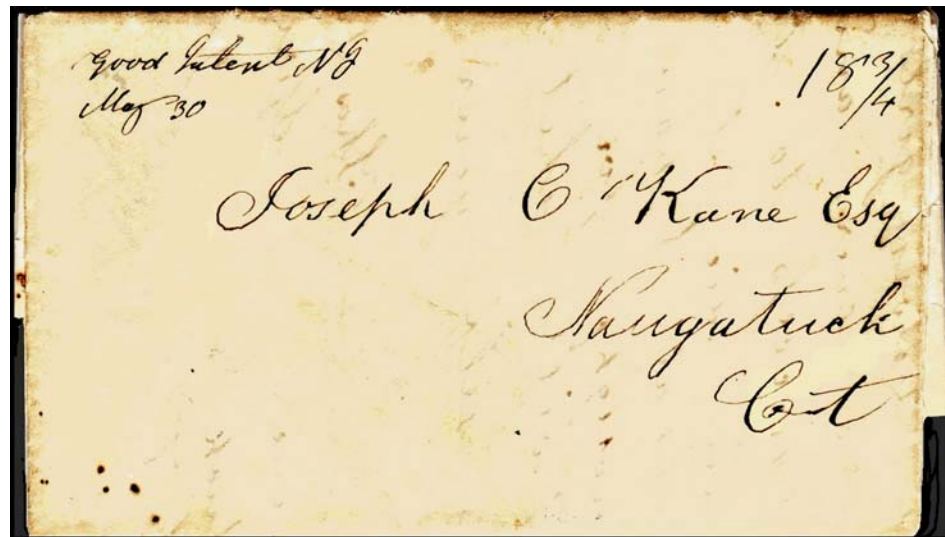 Good Intent NJ
May 30
18 3/4
Joseph C Kane Esq
Naugatuck
Ct